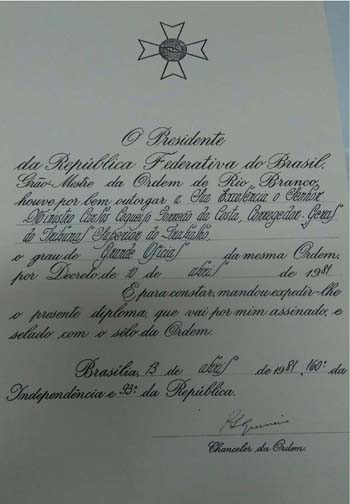 O Presidente
da República Federativa do Brasil,
Grão-Mestre da Ordem de Rio Branco,
houve por bem outorgar a Sua Excelência o Senhor
Ministro Carlos Coqueijo Torreão da Costa, Corregedor-Geral
do Tribunal Superior do Trabalho,
o grau de Grande Oficial da mesma Ordem,
por Decreto de 10 de abril de 1981
E, para constar, mandou expedir-lhe
o presente diploma, que vai por mim assinado, e
selado com o sêlo da Ordem.
Brasília, 13 de abril de 1981, 160º da
Independência e 93º da República.
Chanceler da Ordem.